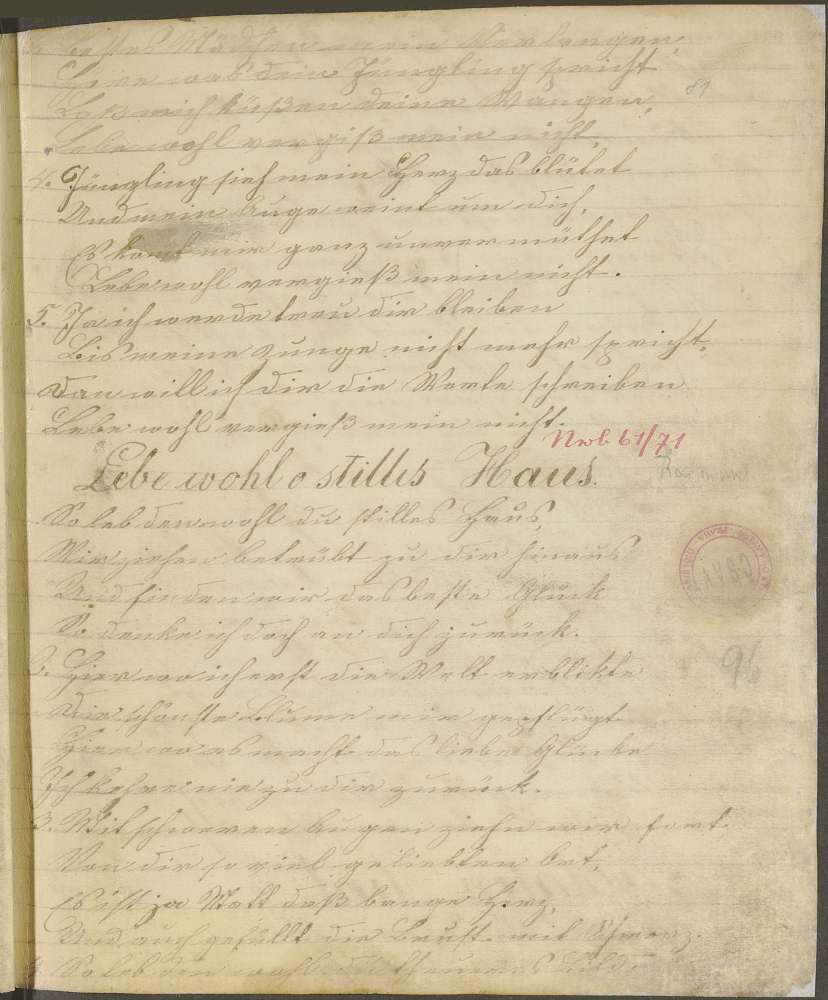 3. Bestes Mädchen mein Verlangen,
Höre was dein Jüngling spricht
Laß mich küßen deine Wangen,
Lebe wohl vergiß mein nicht,
81
4. Jüngling sieh mein Herz das blütet
Und mein Auge weint um dich,
Es komt mir ganz unvermüthet
Lebe wohl vergieß mein nicht.
5. Ja ich werde treu dir bleiben
Bis meine Zunge nicht mehr spricht,
Dan will ich dir die Worte schreiben
Lebe wohl vergieß mein nicht.
Nwb 61/71
Lebe wohl o stilles Haus.
So leb den wohl du stilles Haus,
Wir ziehen betrübt zu dir hinaus
Und finden wir das beste Glück
So denke ich doch an dich zurück.
2. Hier wo ich erst die Welt erblikte
Die schönste Blume mir gepflügt
Hier wo es macht das liebe Glücke
Ich kehre nie zu dir zurück.
96
3. Mit schweren Augen ziehn wir fort,
Von dir so viel geliebten Ort,
Es ist ja Matt daß bange Herz,
Und auch gefüllt die Brust mit Schmerz.
4. So leb den wohl du theueres Bild,